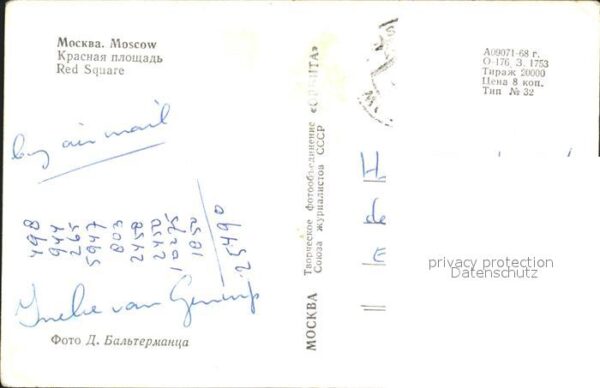 Москва. Moscow
Красная площадь
Red Square
by air mail
498
944
265
5947
803
2458
2450
1025
1052
25490
Ineke van Gennip
Фото Д. Бальтерманца
МОСКВА
Творческое фотообъединение «ОРБИТА»
Союза журналистов СССР
А09071-68 г.
О-176, З. 1753
Тираж 20000
Цена 8 коп.
Тип № 32
H
de
E
privacy protection
Datenschutz